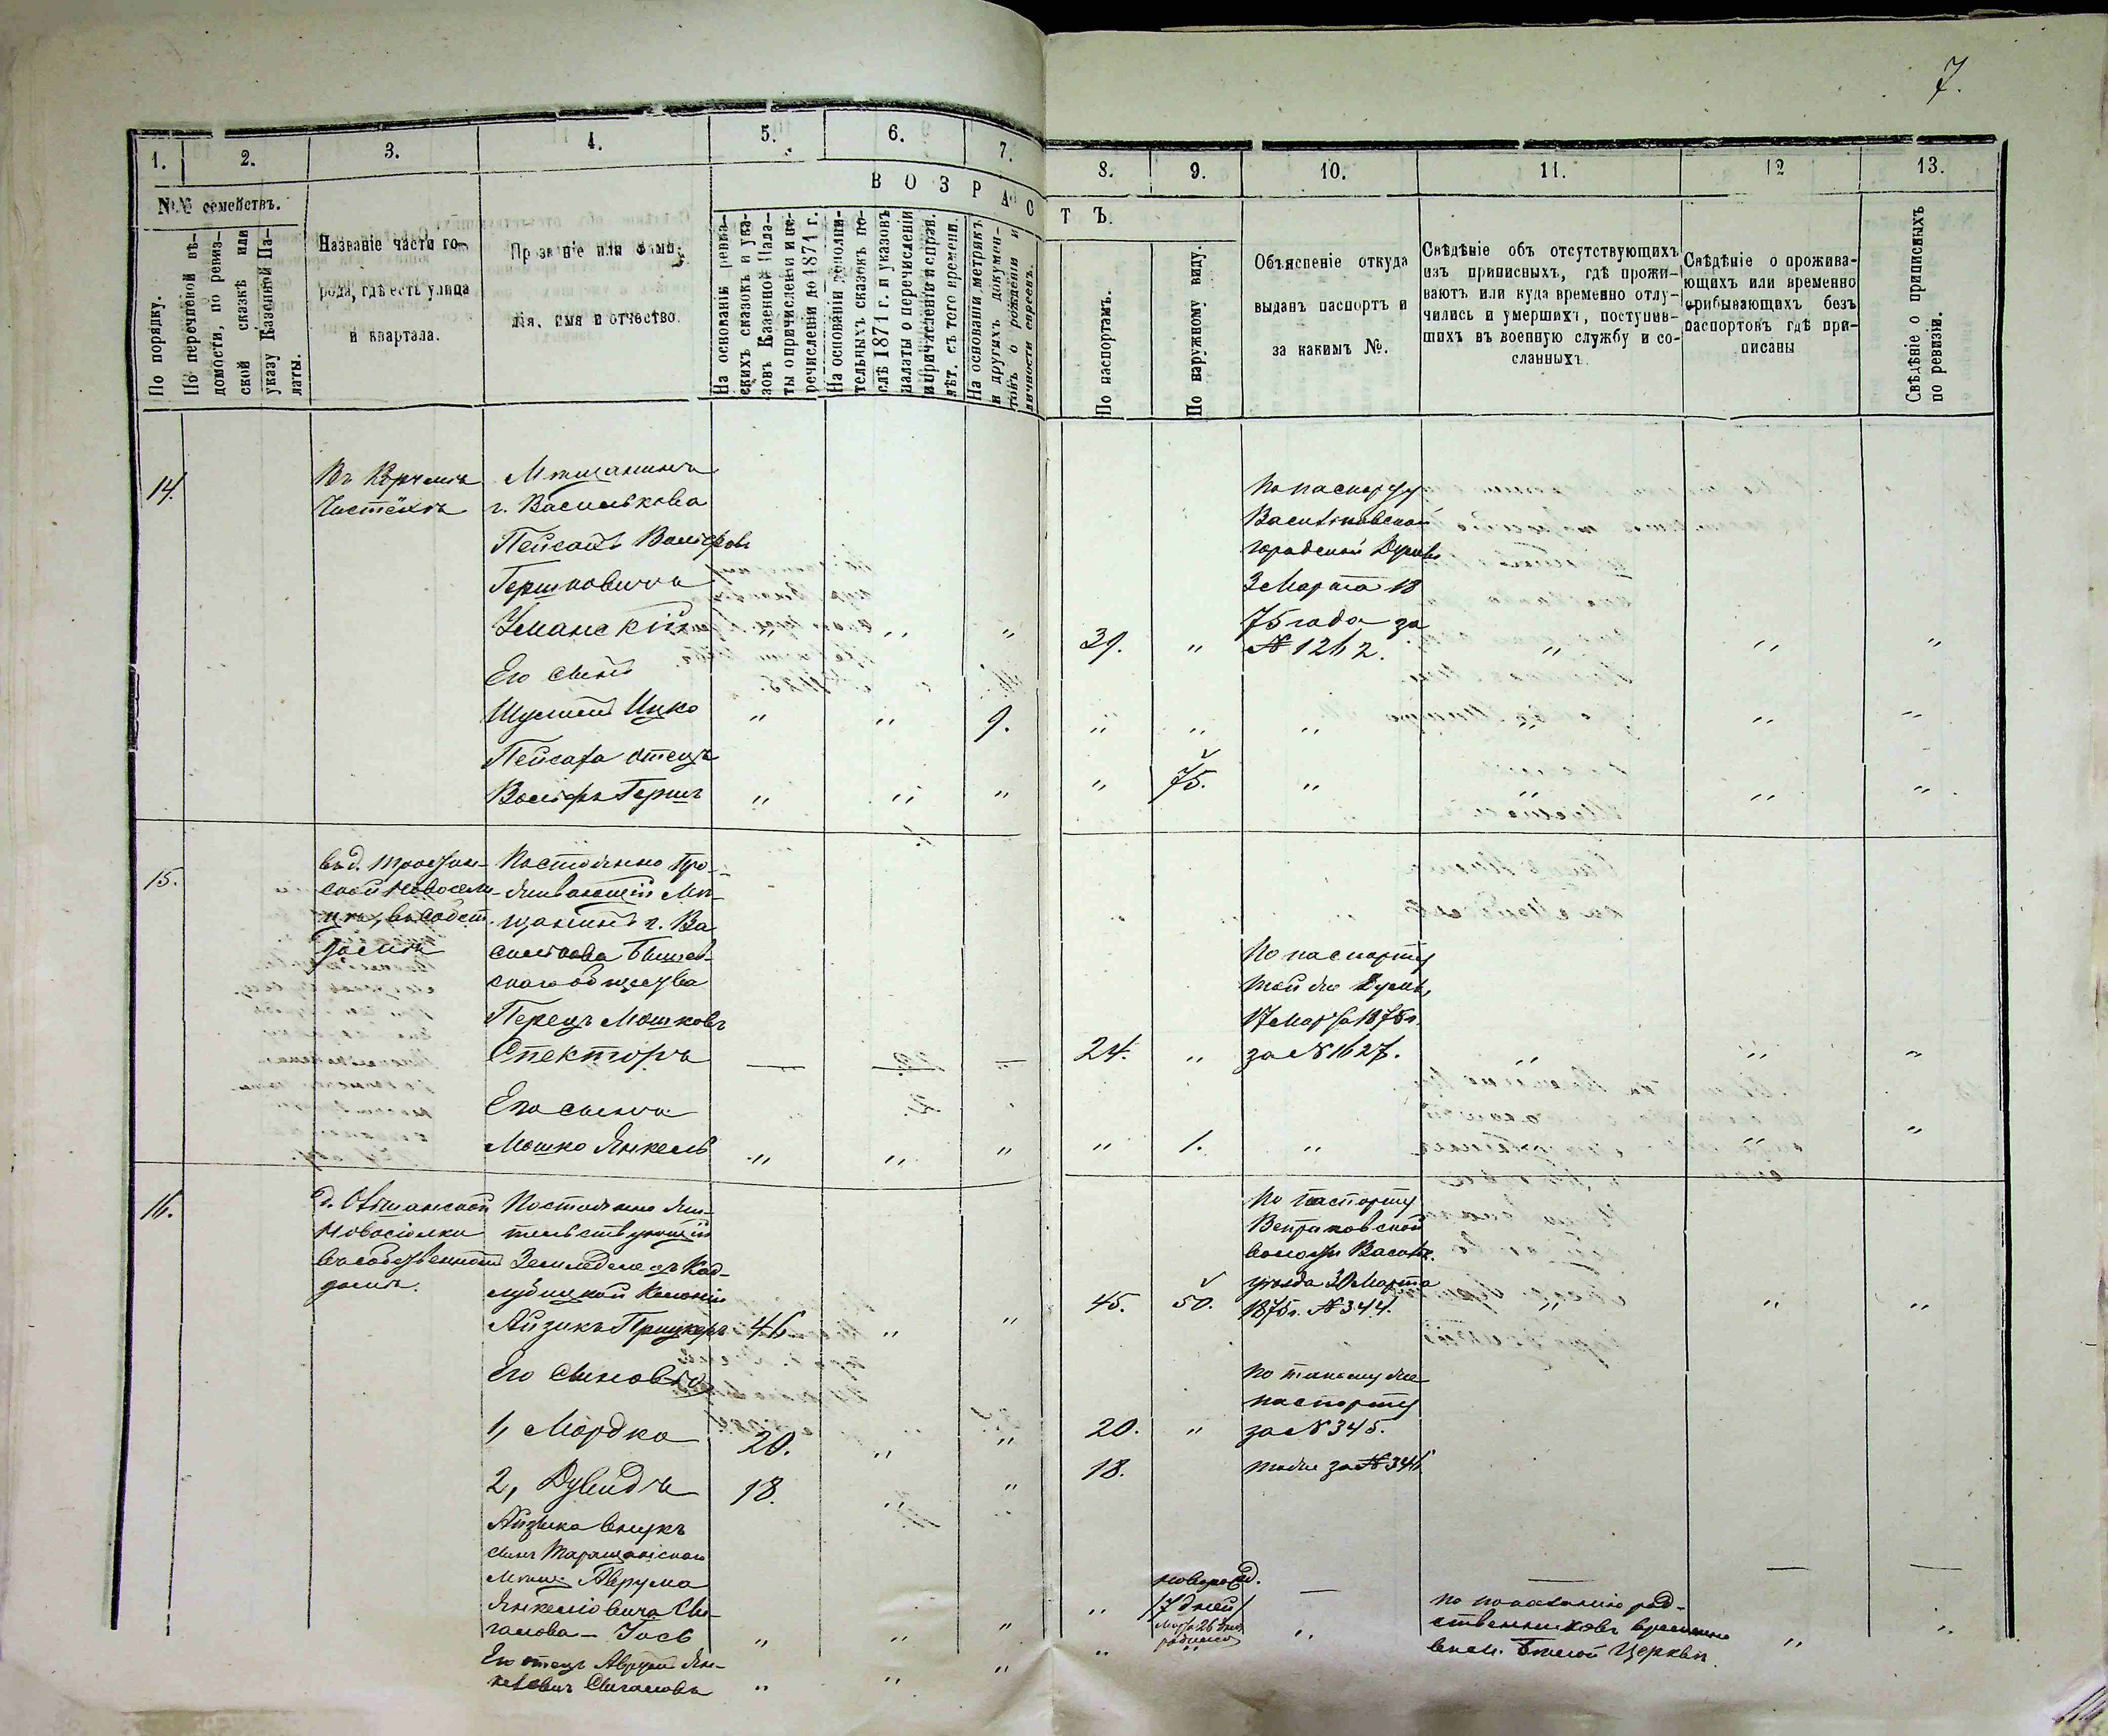 7.
1.
2.
3.
4.
5.
6.
7.
8.
9.
10.
11.
12
13.
№№ семействъ.
В О З Р А С Т Ъ.
По порядку.
По перечневой вѣ-
домости, по ревиз-
ской сказкѣ или
указу Казенной Па-
латы.
Названіе части го-
рода, гдѣ есть улица
и квартала.
Прозваніе или фами-
лія, имя и отчество.
На основаніи ревиз-
скихъ сказокъ и ука-
зовъ Казенной Пала-
ты о причисленіи и пе-
речисленіи до 1874 г.
На основаніи дополни-
тельныхъ сказокъ по-
слѣ 1874 г. и указовъ
палаты о перечисленіи
и причисленіи исправ.
лѣт. съ того времени.
На основаніи метрикъ
и другихъ докумен-
товъ о рожденіи и
личности евреевъ.
По паспортамъ.
По наружному виду.
Объясненіе откуда
выданъ паспортъ и
за какимъ №.
Свѣдѣніе объ отсутствующихъ
изъ приписныхъ, гдѣ прожи-
ваютъ или куда временно отлу-
чились и умершихъ, поступив-
шихъ въ военную службу и со-
сланныхъ.
Свѣдѣніе о прожива-
ющихъ или временно
прибывающихъ безъ
паспортовъ гдѣ при-
писаны
Свѣдѣніе о приписныхъ
по ревизіи.
14.
Въ Корчмѣ
Мѣщанинъ
г. Василькова
Пейсахъ Вольфовъ
Гершковичъ
Уманскій " " "
39. "
По паспорту
Васильковской
городской Думы
3 Марта 18
75 года за
№ 1262.
" " "
Его сынъ
Шулимъ Ицко " " 9. " " " " " "
Пейсаха отецъ
Вольфъ Гершъ " " " " 75. " " " "
15.
въ д. Трасфан-
ской Новосели-
цѣ, въ собст.
домѣ
Постоянно про-
живающій Мѣ-
щанинъ г. Ва
силькова Бышев-
скаго общества
Перецъ Мошковъ
Спекторъ — 22. —
24. "
По паспорту
той же Думы,
17 Марта 1875 г.
за № 1627.
" " "
Его сынъ 2.
Мошко Янкель " " " " 1. " " " "
16.
д.
Новосіолки
въ собственномъ
домѣ.
Постоянно жи-
тельствующій
Земледелецъ Код-
лубицкой Колоніи
Айзикъ Прицкеръ 46 " "
45. 50.
По паспорту
Ветраковской
волости Васильк.
уѣзда 30 Марта
1875 г. № 344.
" " "
Его сыновья
1, Мордко 20. " "
20. "
По такому же
паспорту
за № 345.
2, Дувидъ 18. " "
18.
тоже за № 346
Айзыка внукъ
сынъ Таращанскаго
Мѣщ. Аврума
Янкеліовича Сы-
галова — Іось " " "
"
новорожд.
/7 дней/
Марта 26 дня
родился
— — — —
Его отецъ Аврумъ Ян-
келевичъ Сыгаловъ " " " " "
по показанію род-
ственниковъ временно
въ м. Бѣлой Церкви.
" "